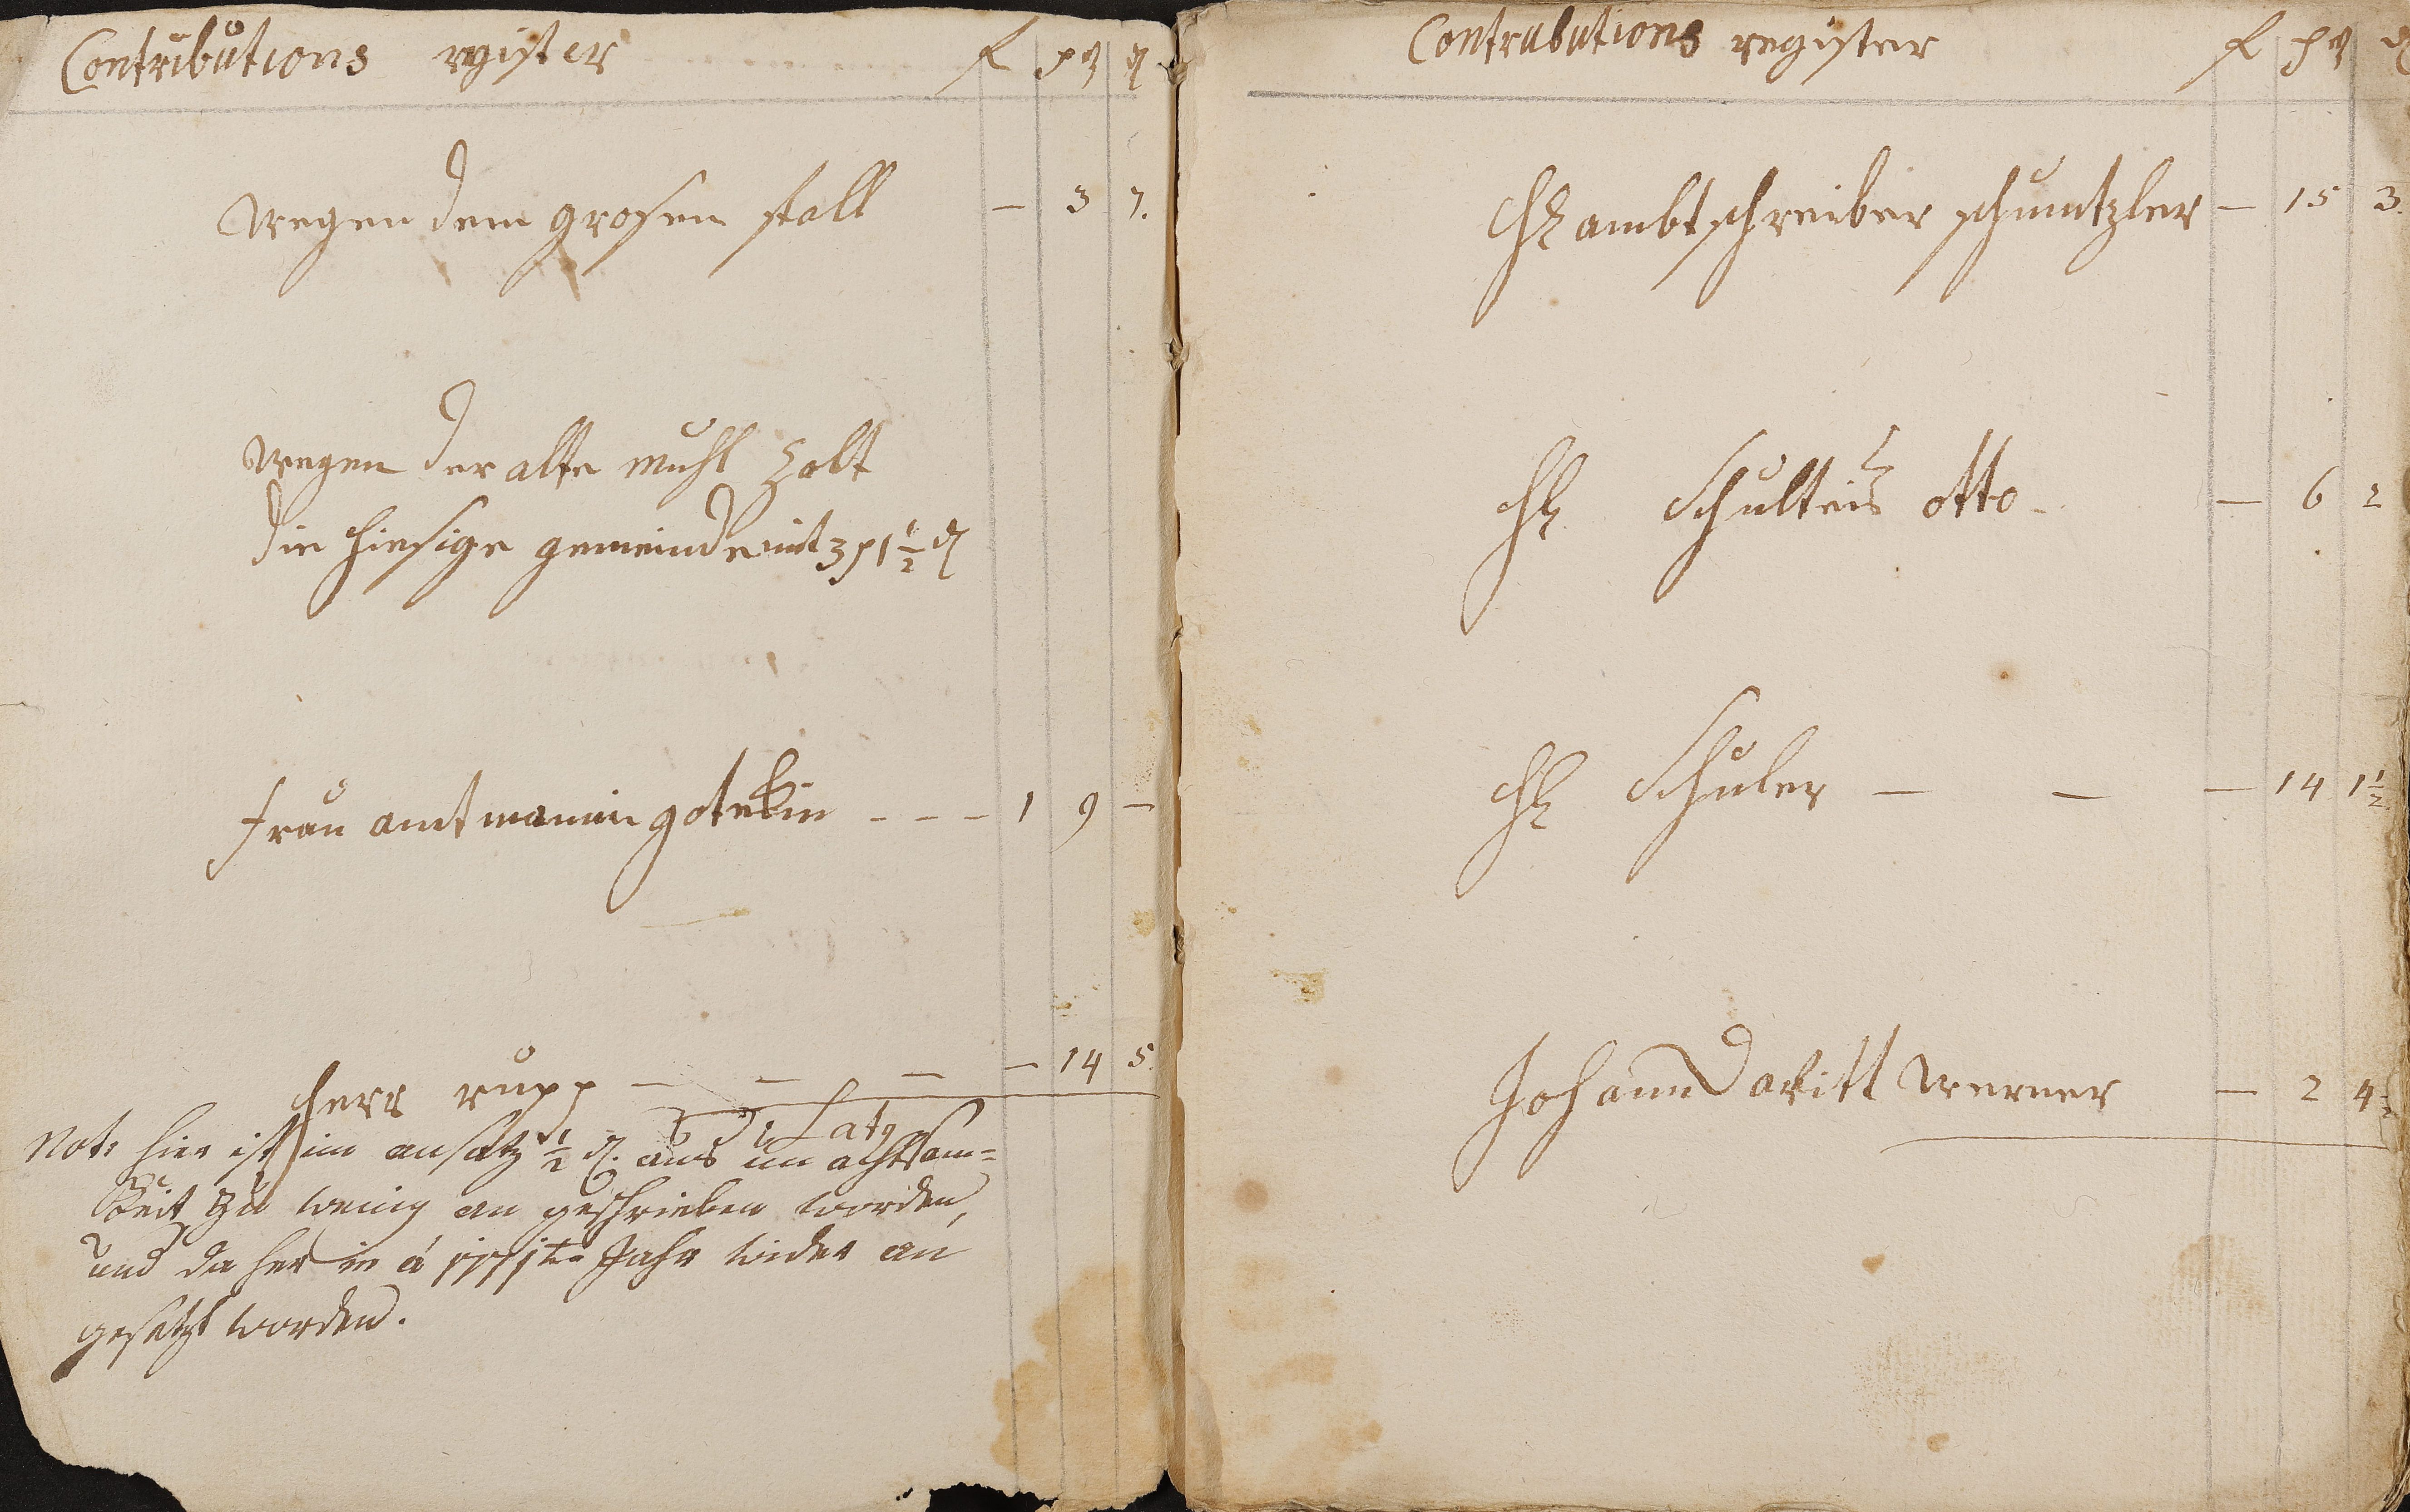 Contributions register f ß ₰
wegen dem grosen stall – 3 7.
wegen der alte mühl zalt
die hiesige gemeinde mit 3 ß 1 1/2 ₰
frau amtmannin gotekin - - - 1 9 –
herr rupp – – – – 14 5.
Latq
Not: hier ist im ansatz 1/2 ₰. aus un achtsam=
keit zu wenig an geschrieben worden,
und daher in a 1771te Jahr wider an
gesetzt worden.
Contrubutions register f ß ₰
H ambtschreiber schuntzler – 15 3.
H Schulteis otto – 6 2
H Schuler – – – 14 1 1/2
Johann Davitt werner – 2 4 1/2